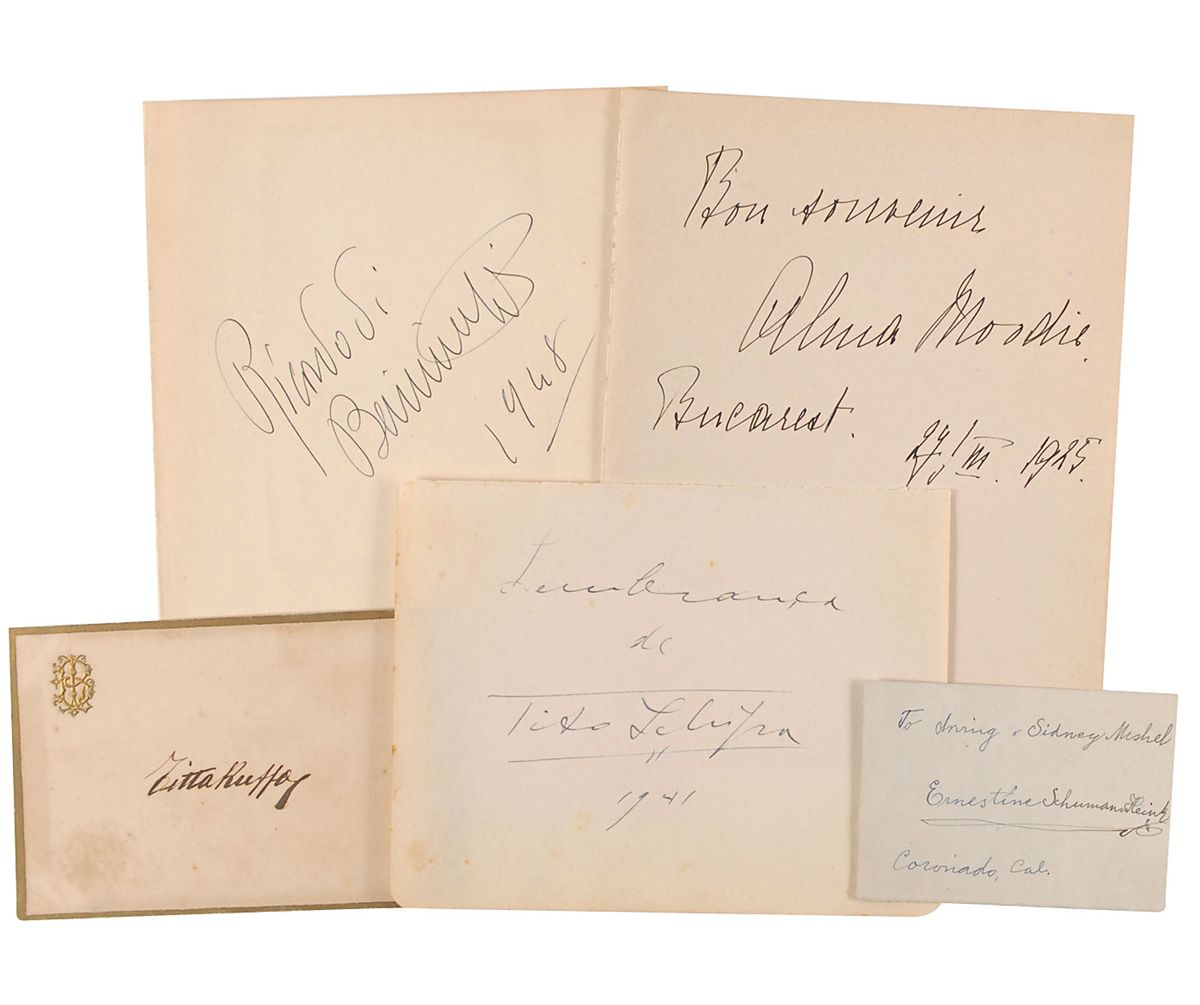 Ricardo di
1948
Bon souvenir
Alma Moodie
Bucarest.
27/III. 1925.
Lembrança
de
Tito Schipa
1941
Titta Ruffo
To Irving & Sidney Mishel
Ernestine Schumann Heink
Coronado, Cal.